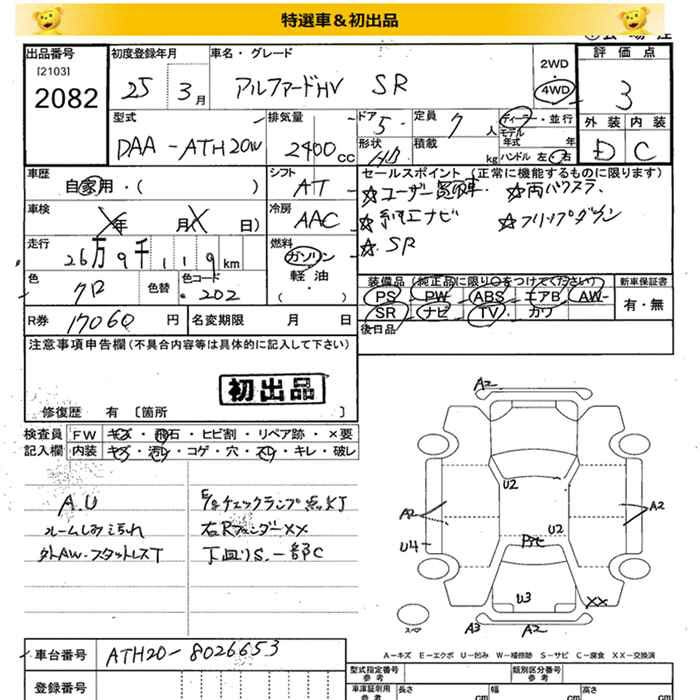 特選車＆初出品
出品番号
[2103]
2082
初度登録年月
25 3月
車名・グレード
アルファードHV SR
2WD
4WD
評価点
3
外装 内装
D C
型式
DAA-ATH20W
排気量
2400cc
ドア 5
形状
定員 7人
積載 kg
ディーラー・並行
モデル年式 年式
ハンドル 左・右
車歴
自家用・( )
シフト
AT
車検
年 月 日)
冷房
AAC
走行
26万9千119km
燃料
ガソリン
軽油
( )
色
クロ
色替
色コード
202
R券 17060円
名変期限 月 日
セールスポイント (正常に機能するものに限ります)
☆ユーザー買取車 ☆両パワスラ
☆純正ナビ ☆フリップダウン
☆SR
装備品 (純正品に限り○をつけてください)
新車保証書
PS PW ABS エアB AW
SR ナビ TV カワ
有・無
後日品
注意事項申告欄(不具合内容等は具体的に記入して下さい)
初出品
修復歴 有 [箇所 ]
検査員記入欄
FW キズ・飛石・ヒビ割・リペア跡・×要
内装 キズ・汚レ・コゲ・穴・スレ・キレ・破レ
A.U
ルームしみよごれ
外AW.スタットレスT
E/gチェックランプ点灯
右RフェンダーXX
下廻りS.一部C
A2
U2
A2
A2
U4
U2
U3
XX
スペア
A3
A2
A-キズ E-エクボ U-凹み W-補修跡 S-サビ C-腐食 XX-交換済
車台番号 ATH20-8026653
登録番号
型式指定番号
参考
類別区分番号
参考
車庫証明用
参考
長さ cm
幅 cm
高さ cm